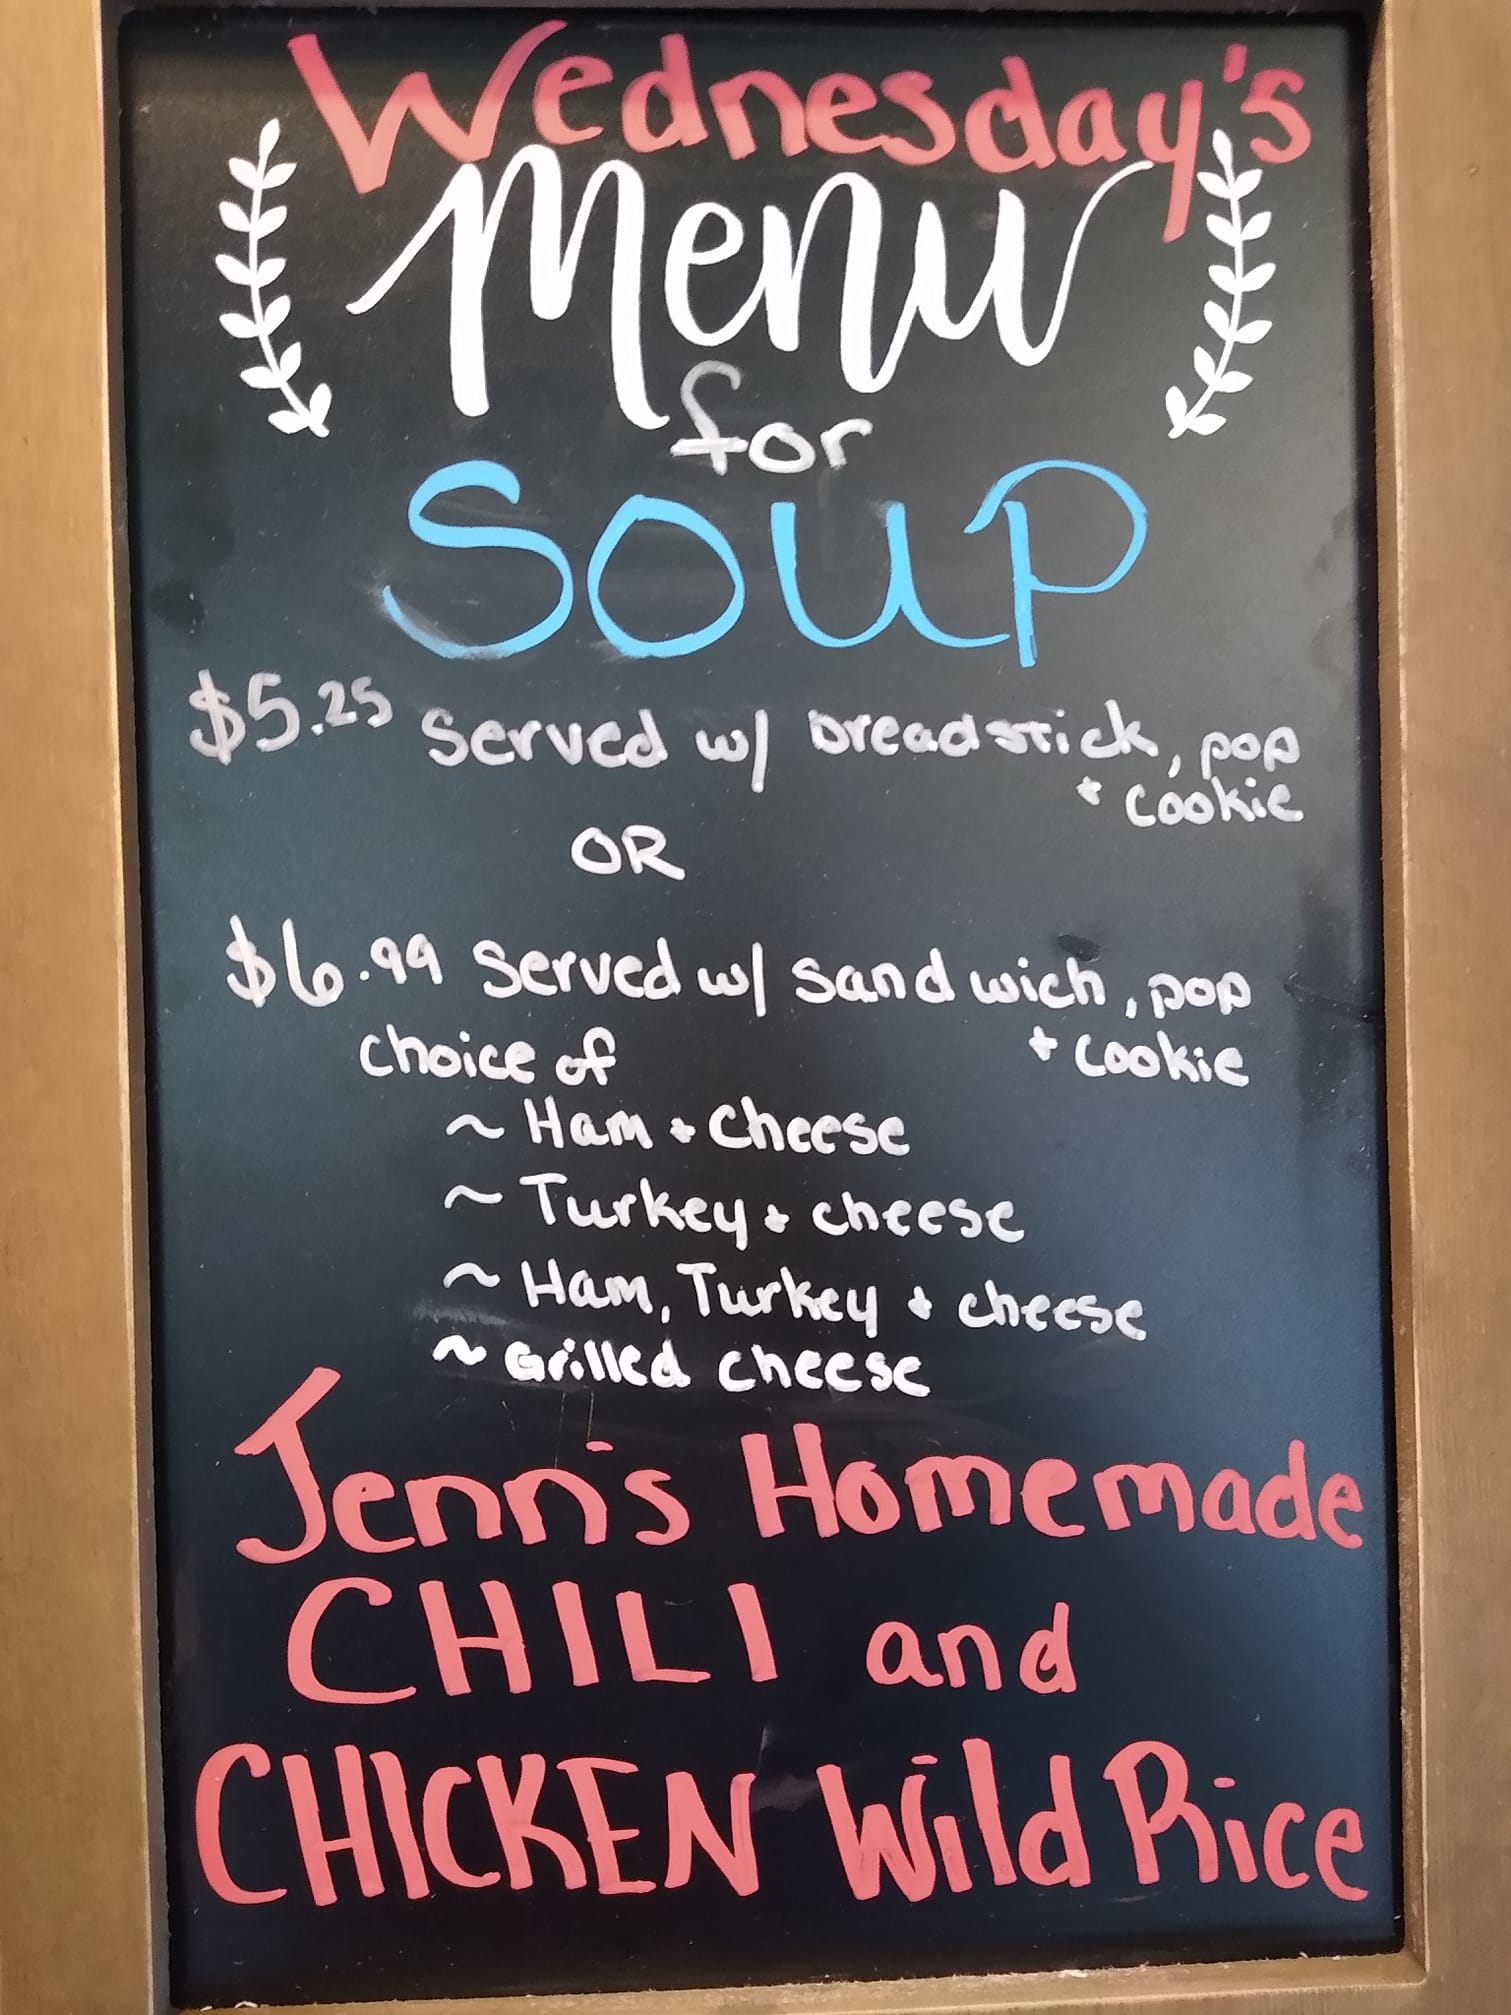 Wednesday's
Menu
for
SOUP
$5.25 Served w/ breadstick, pop
+ cookie
OR
$6.99 Served w/ sandwich, pop
choice of + cookie
~ Ham + Cheese
~ Turkey + cheese
~ Ham, Turkey + cheese
~ Grilled cheese
Jenn's Homemade
CHILI and
CHICKEN Wild Rice